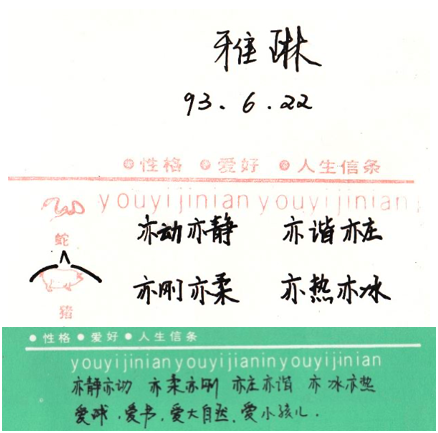 雅琳
93.6.22
性格 爱好 人生信条
youyijinianyouyijinian
蛇
亦动亦静 亦谐亦庄
亦刚亦柔 亦热亦冰
猪
性格 爱好 人生信条
youyijinianyouyijianinyouyijinian
亦静亦动 亦柔亦刚 亦庄亦谐 亦冰亦热
爱球、爱书、爱大自然、爱小孩儿.